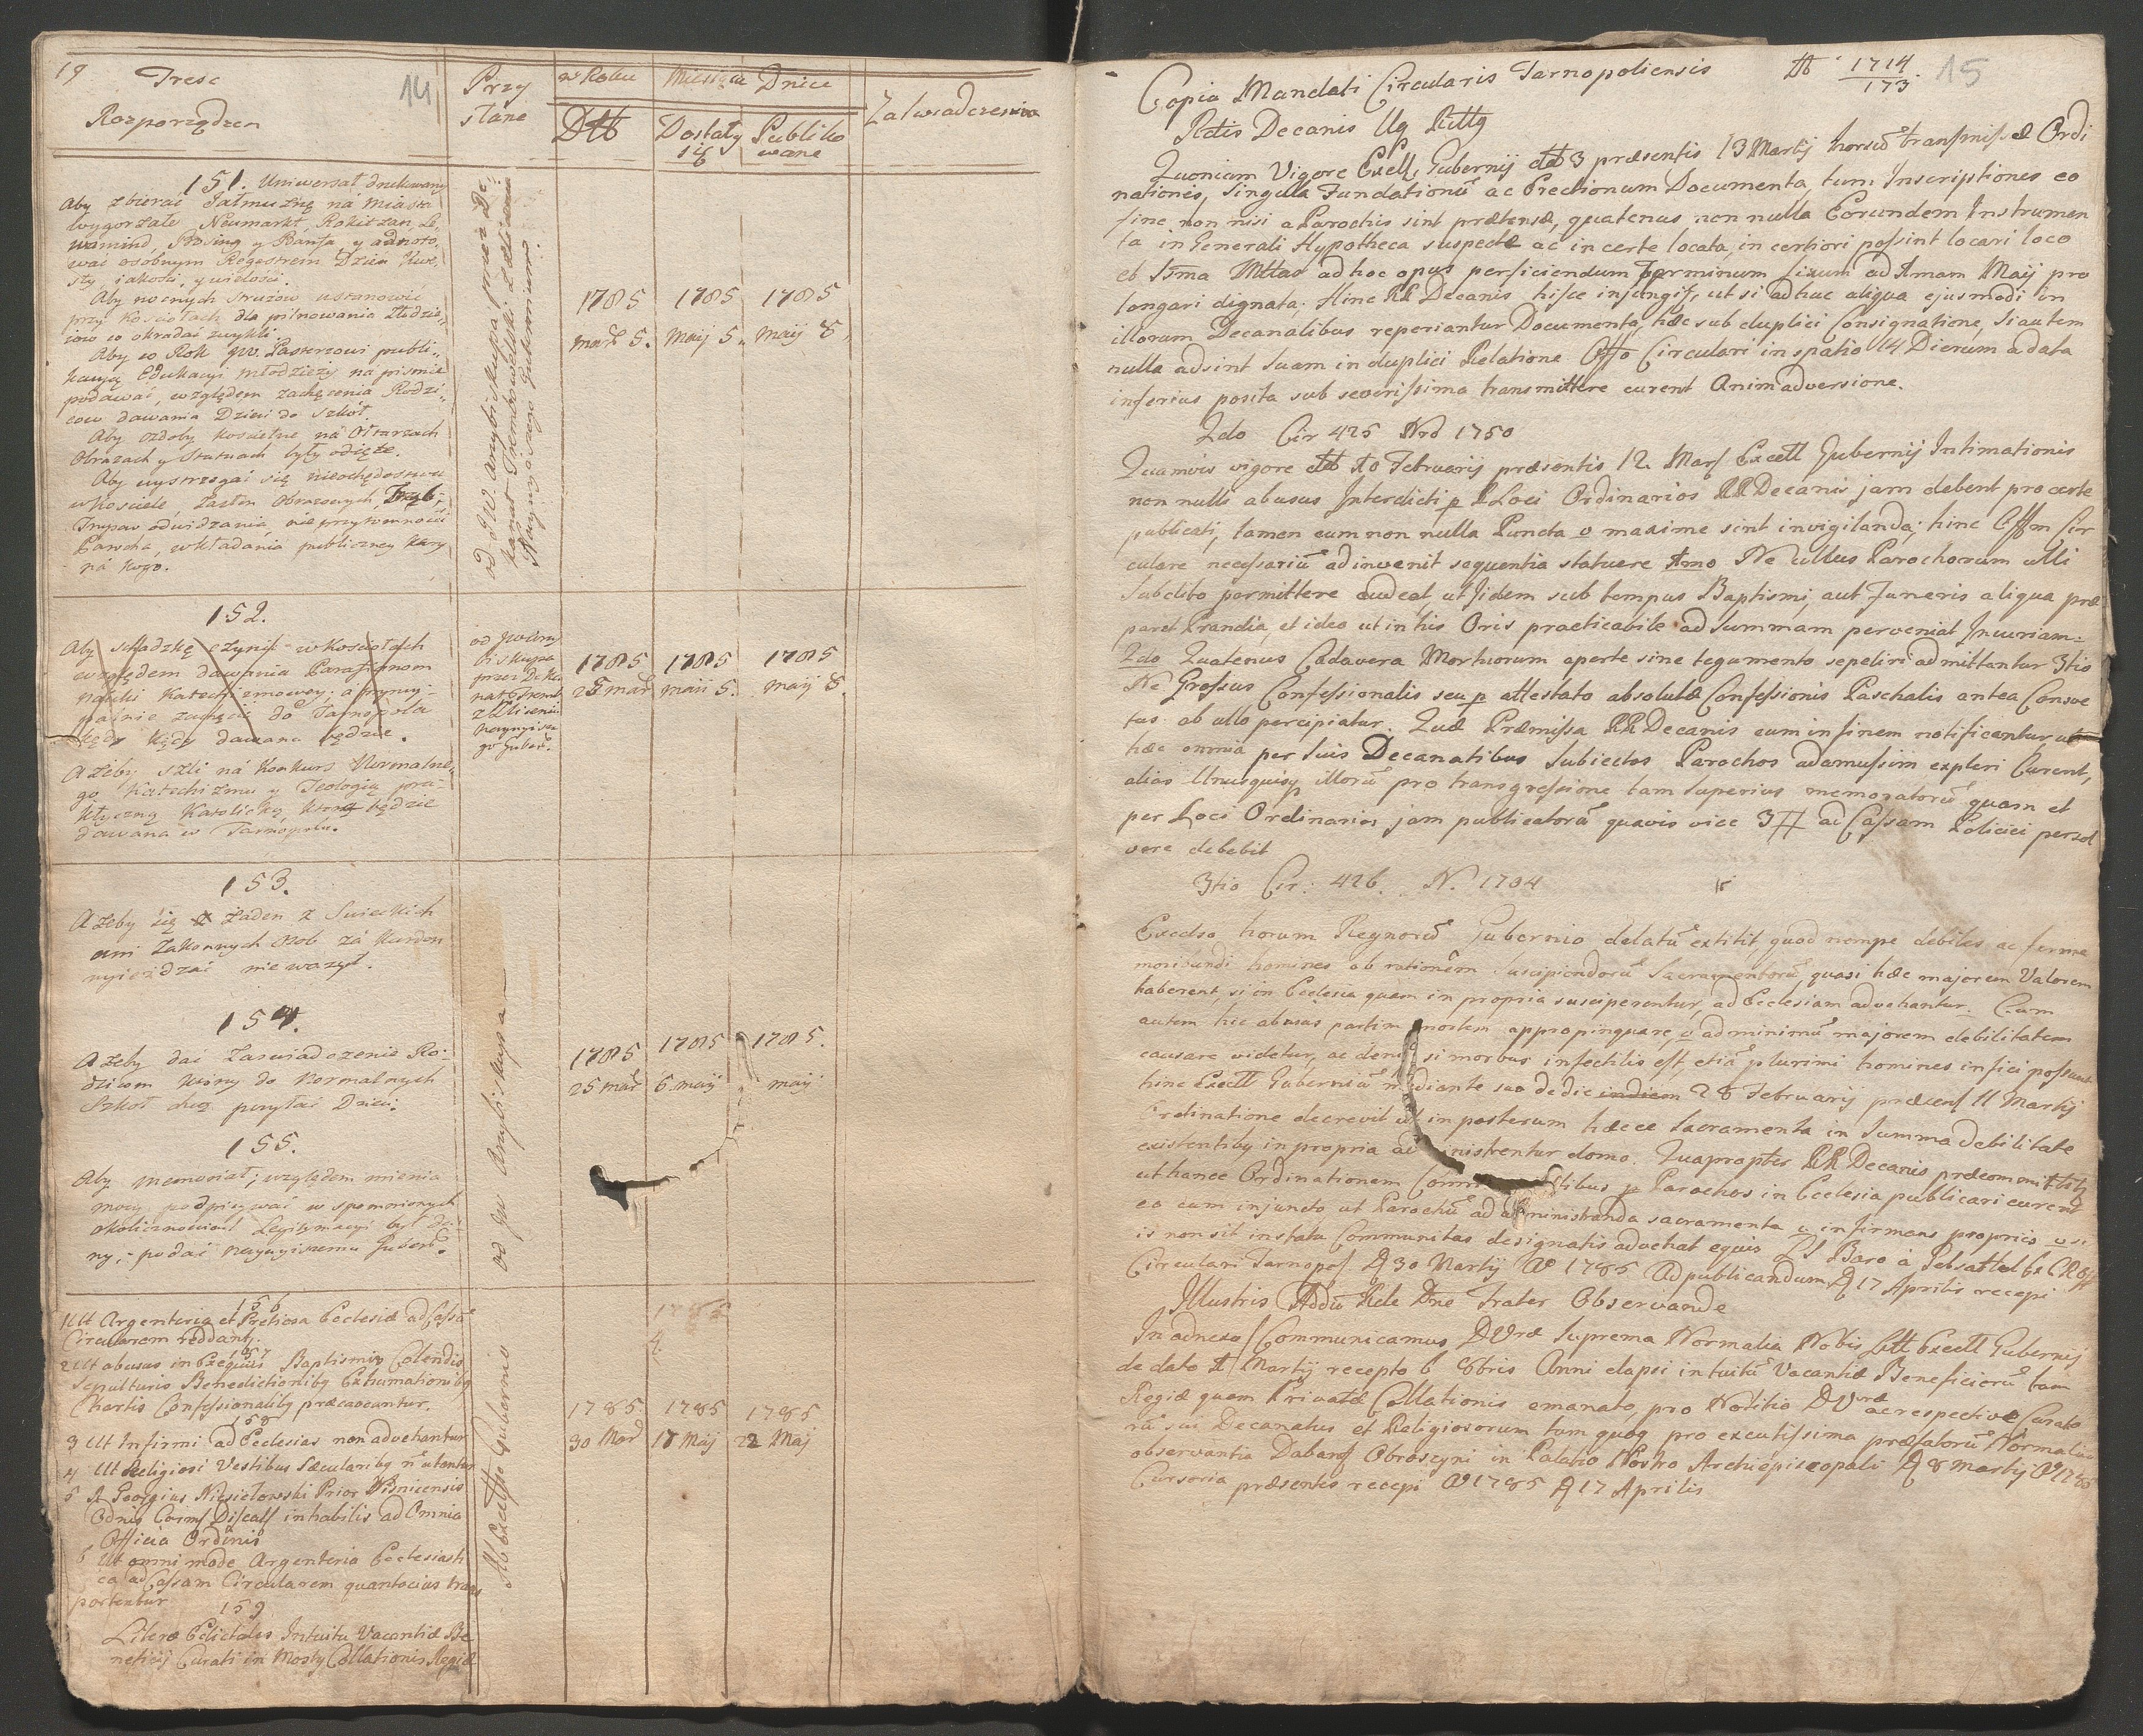 19 Tresc
Rozporządzen
14
Przy
słane
w Roku Miesiącu Dnice
Dtto Dostały Publiko
się wane
Zaswiadczenia
151. Uniwersał drukowany
Aby zbierać Jałmużnę ná Miasta
wygorzałe Neumarkt, Rokitzan, Le,
wamind, Pösing y Bansa, y adnoto,
wać osobnym Regestrem Dzien Kwe,
sty iakości, y wielości.
Aby nocnych strużow ustanowić
przy Kosciołach dla pilnowania złodzie,,
iow co okradać zwykli.
Aby co Rok gw. Pasterzowi publi,,
kacyą Edukacyi młodzieży na pismie
podawać, względem zachęcenia Rodzi,,
cow dawania Dzieci do Szkół.
Aby ozdoby koscielne ná Ołtarzach
Obrazach y Statuach były odięte.
Aby wystrzegać się nieochędostwa
w kosciele, Zasłon Obrazowych,
Trupow odwidzania, nieprzytomności
Parocha, wkładania publiczney kary
ná kogo.
od JW. Arzybiskupa przez De,
kanat Trembowelski z zlecenia
Naÿnyższego Gubernium.
1785 1785 1785
mar 5. Maij 5. Maij 8,
152.
Aby schadzkę czynił w kosciołach
względem dawania Parafianom
nauki Katechizmowey; a pryncy-
palnie zachęcić do Tarnopola
kędy dawana będzie.
Ażeby szli ná Konkurs Normalne,,
go Katechizmu y Teologią pra-
ktyczną Katolicką, ktora będzie
dawana w Tarnopolu.
1785 1785 1785
25 mar maii 5. maij 8.
153.
Ażeby się żaden z Swieckich
ani Zakonnych Osob zá Kordon
wyieżdzać nie ważył.
154.
Ażeby dać Zaswiadczenie Ro-
dzicom ktory do Normalnych
Szkoł chcą posyłać Dzieci.
1785 1785 1785.
25 mar 6 maij maij
155.
Aby memoriał, względem mienia
mocy podpisywać w spomnionych
okolicznosciach Legitymacyi był da-
ny, podać nayiasnieyszemu Gubern.
od JW Arzybiskupa
156
1 Ut Argenteria et Pretiosa Ecclesiæ ad Cassã
Circularem reddant.
157
2 Ut abusus in Exequiis Baptismis Colendis
Sepulturis Benedictionibq Exhumationibq
Chartis Confessionalibq præcaveantur.
158
3 Ut Infirmi ad Ecclesias non advehantur
4 Ut Religiosi Vestibus Sæcularibq ñ utantur
5 A. Georgius Prior Wisnicensis
Ordnis Carmel Discalc inhabilis ad Omnia
Officia Ordinis
6 Ut omni mode Argenteria Ecclesiasti
ca ad Cassam Circularem quantocius trans
portentur
159
Literæ Edictales Intuitu Vacantiæ Be
neficij Curati in Mosty Collationis Regiæ
Ab Excelso Gubernio
1785 1785 1785
30 Mar 17 Maij 22 Maij
15
Copia Mandati Circularis Tarnopoliensis Dtto 1714
173
Rdis Decanis Uq Rittq
Quoniam Vigore Excell, Gubernij dtto 3 præsentis 13 Martij horsũ transmissæ Ordi
nationis, Singula Fundationũ ac Erectionum Documenta, tum Inscriptiones eo
fine non nisi a Parochis sint prætensæ, quatenus non nulla Eorundem Instrumen
ta in Generali Hypotheca suspecte ac incerte locata, in certiori possint locari loco
et Sẽma Mttas ad hoc opus perficiendum Terminum fixum ad Imam Maij pro
longari dignata. Hinc RR Decanis hisce injungit, ut si adhuc aliqua ejusmodi in
illorum Decanalibus reperiantur Documenta, hæc sub duplici Consignatione, si autem
nulla adsint Suam in duplici Relatione Offo Circulari in spatio 14 Dierum a data
inferius posita sub severissima transmittere curent Animadversione.
2do Cir 425 Nro 1750
Quamvis vigore dtto 10 Februarij præsentis 12 Mart Excell Gubernij Intimationis
non nulli abusus Interdicti p RLoci Ordinarios RR Decanis jam debent pro certe
publicati, tamen cum non nulla Puncta v maxime sint invigilanda; hinc Offm Cir
culare necessariũ adinvenit sequentia statuere Imo Ne ullus Parochorum ulli
Subdito permittere audeat, ut Iidem sub tempus Baptismi, aut Funeris aliqua præ
paret Prandia, et ideo ut in his Oris practicabile ad summam perveniat Incuriam.
2do Quatenus Cadavera Mortuorum aperte sine tegumento sepeliri admittantur 3tio
Ne Grossus Confessionalis seu p attestato absolutæ Confessionis Paschalis antea Consve
tus ab ullo percipiatur. Quæ Præmissa RR Decanis eum in finem notificantur, ut
hæc omnia per suis Decanatibus Subiectos Parochos adamussim expleri Curent,
alias Unusquisq illorũ pro transgressione tam superius memoratorũ quam et
per Loci Ordinarios jam publicatorũ quavis vice 3# ad Cassam Policiei persol
vere debebit
3tio Cir: 426. N. 1704
Excelso horum Regnorũ Gubernio delatũ extitit, quod nempe debiles ac ferme
moribundi homines ob rationem suscipiendorũ Sacramentorũ, quasi hæc majorem Valorem
haberent, si in Ecclesia quam in propria susciperentur, ad Ecclesiam advehantur. Cum
autem hic abusus partim mortem appropinquare, v ad minimũ majorem debilitatem
causare videtur, ac si morbus infectilis est, etiã plurimi homines infici possunt
hinc Excell Guberniũ mediante suo de die 28 Februarij præsent 11 Martij
Ordinatione decrevit ut in posterum hæcce Sacramenta in Summa debilitate
existentibq in propria administrentur domo. Quapropter RR Decanis præcommittitq
ut hancce Ordinationem p Parochos in Ecclesia publicari curent
eo cum injuncto ut Parochũ ad administranda sacramenta v infirmans propriis v si
is non sit in statu Communitas designatis advehat equis LS Baro à
Circulari Tarnopol. D 30 Martij Ao 1785 Ad publicandum D 17 Aprilis recepi
Illustris Addũ Rde Dne Frater Observande
In adnexo Communicamus DVræ Suprema Normalia Nobis Excell Gubernij
de dato Martij recepto 6 8bris Anni elapsi intuitũ Vacantiæ Beneficiorũ tam
Regiæ quam Privatæ Collationis emanato, pro Notitia DVræ ac respective Curato
rũ sui Decanatus et Religiosorum tum quoq pro exactissima præfatorũ Normalium
observantia Dabant Obroszyni in Palatio Nostro Archiepiscopali D 8 Martij Ao 1785
Cursoria præsentes recepi Ao 1785 D 17 Aprilis